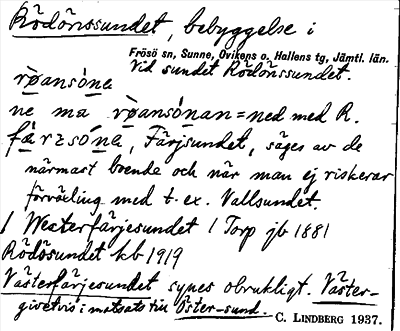 Rödönssundet, bebyggelse i
Frösö sn, Sunne, Ovikens o. Hallens tg, Jämtl. län.
Vid sundet Rödönssundet.
rø̀ansóna
ne ma rø̀ansónan = ned med R.
färzsóna, Färjsundet, säges av de
närmast boende och när man ej riskerar
förväxling med t. ex. Vallsundet.
/ Westerfärjesundet / Torp jb 1881
Rödösundet kb 1919
Västerfärjesundet synes obrukligt. Väster-
givetvis i motsats till Öster-sund.
C. LINDBERG 1937.